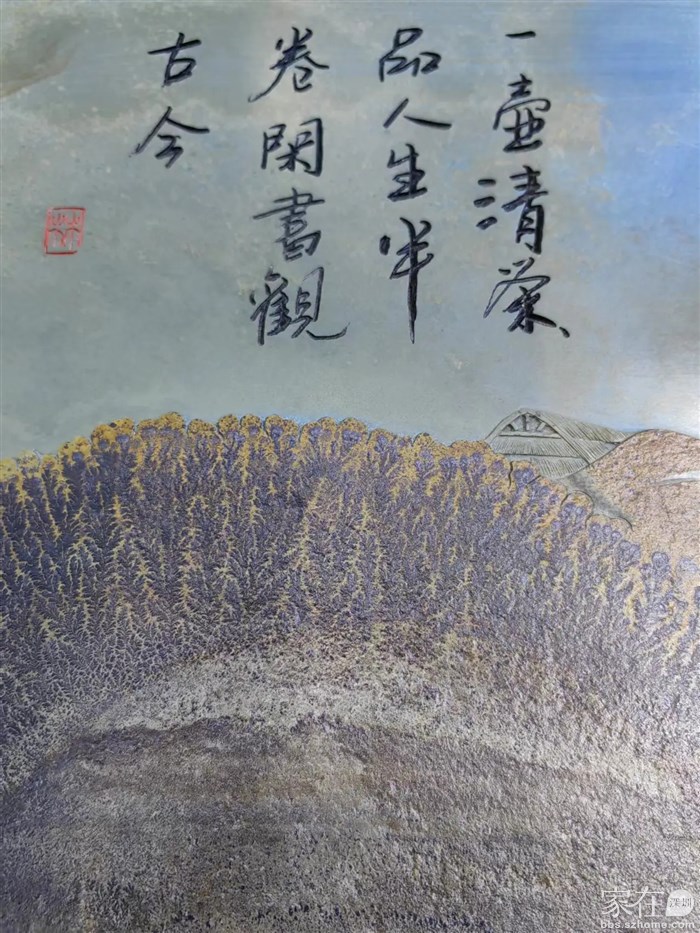 一壺清茶
品人生半
卷閑書觀
古今
家在
深圳
bbs.szhome.com